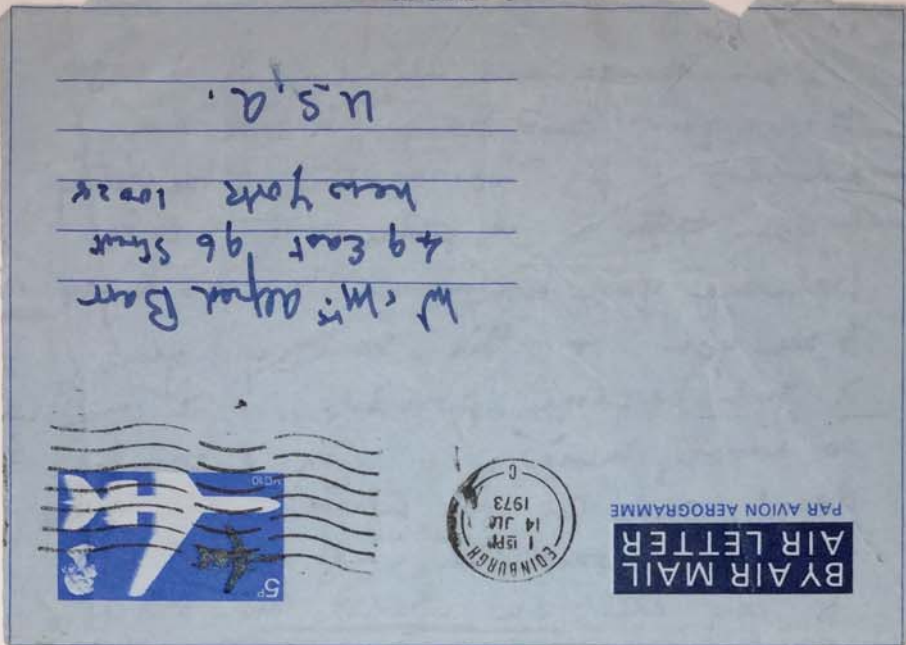 BY AIR MAIL
AIR LETTER
PAR AVION AEROGRAMME
EDINBURGH
1 15PM
14 JLY
1973
C
5P
VC10
Mr & Mrs Alfred Barr
49 East 96 Street
New York 10028
U.S.A.